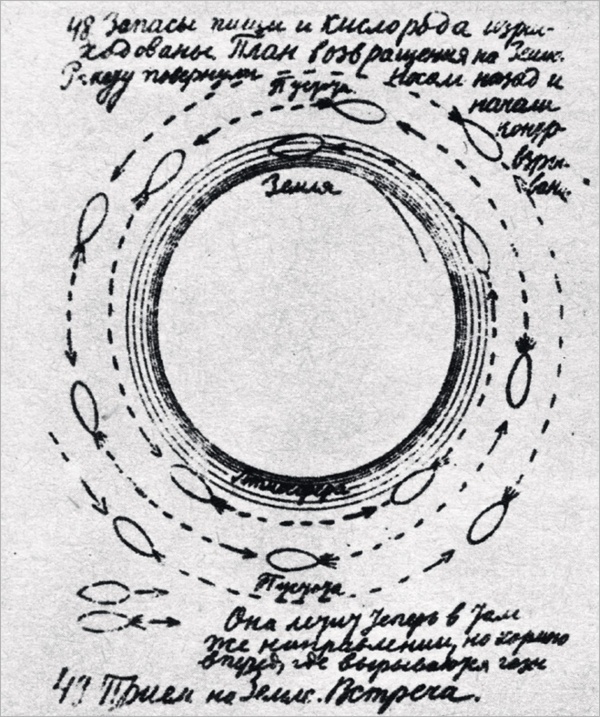 48 Запасы пищи и кислорода израс-
ходованы. План возвращения на Землю.
Ракету повернули носом назад и
начали
контр-
взры-
вание
Пустота
Земля
Атмосфера
Пустота
Она летит теперь в том
же направлении, но кормою
вперед, где вырываются газы
49 Прием на Земле. Встреча.